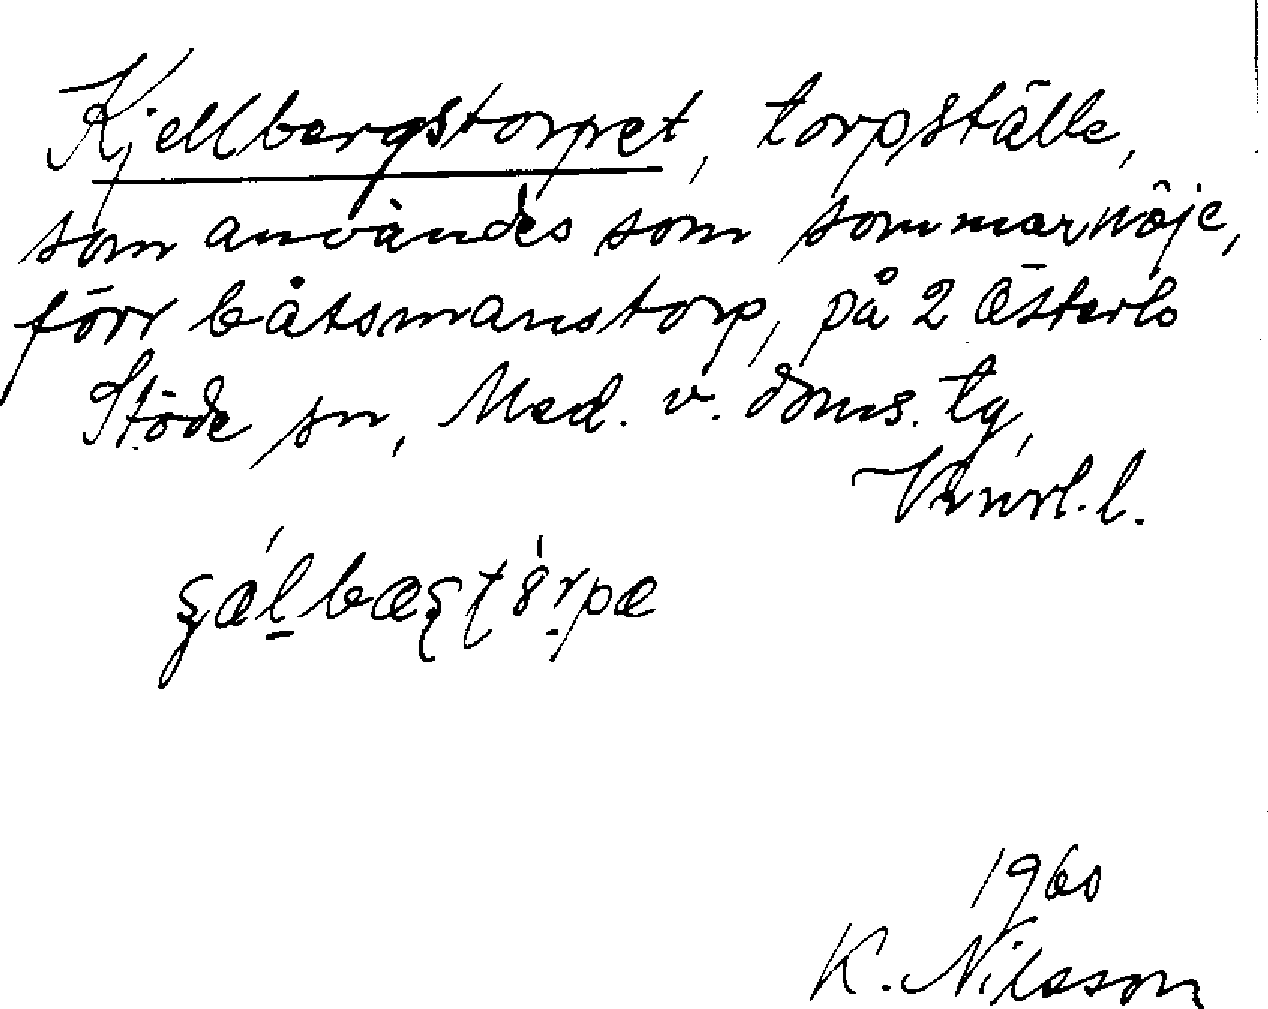 Kjellbergstorpet, torpställe,
som användes som sommarnöje,
förr båtsmanstorp, på 2 Österlo
Stöde sn, Med. v. doms. tg,
Vnrl. l.
1960
K. Nilsson